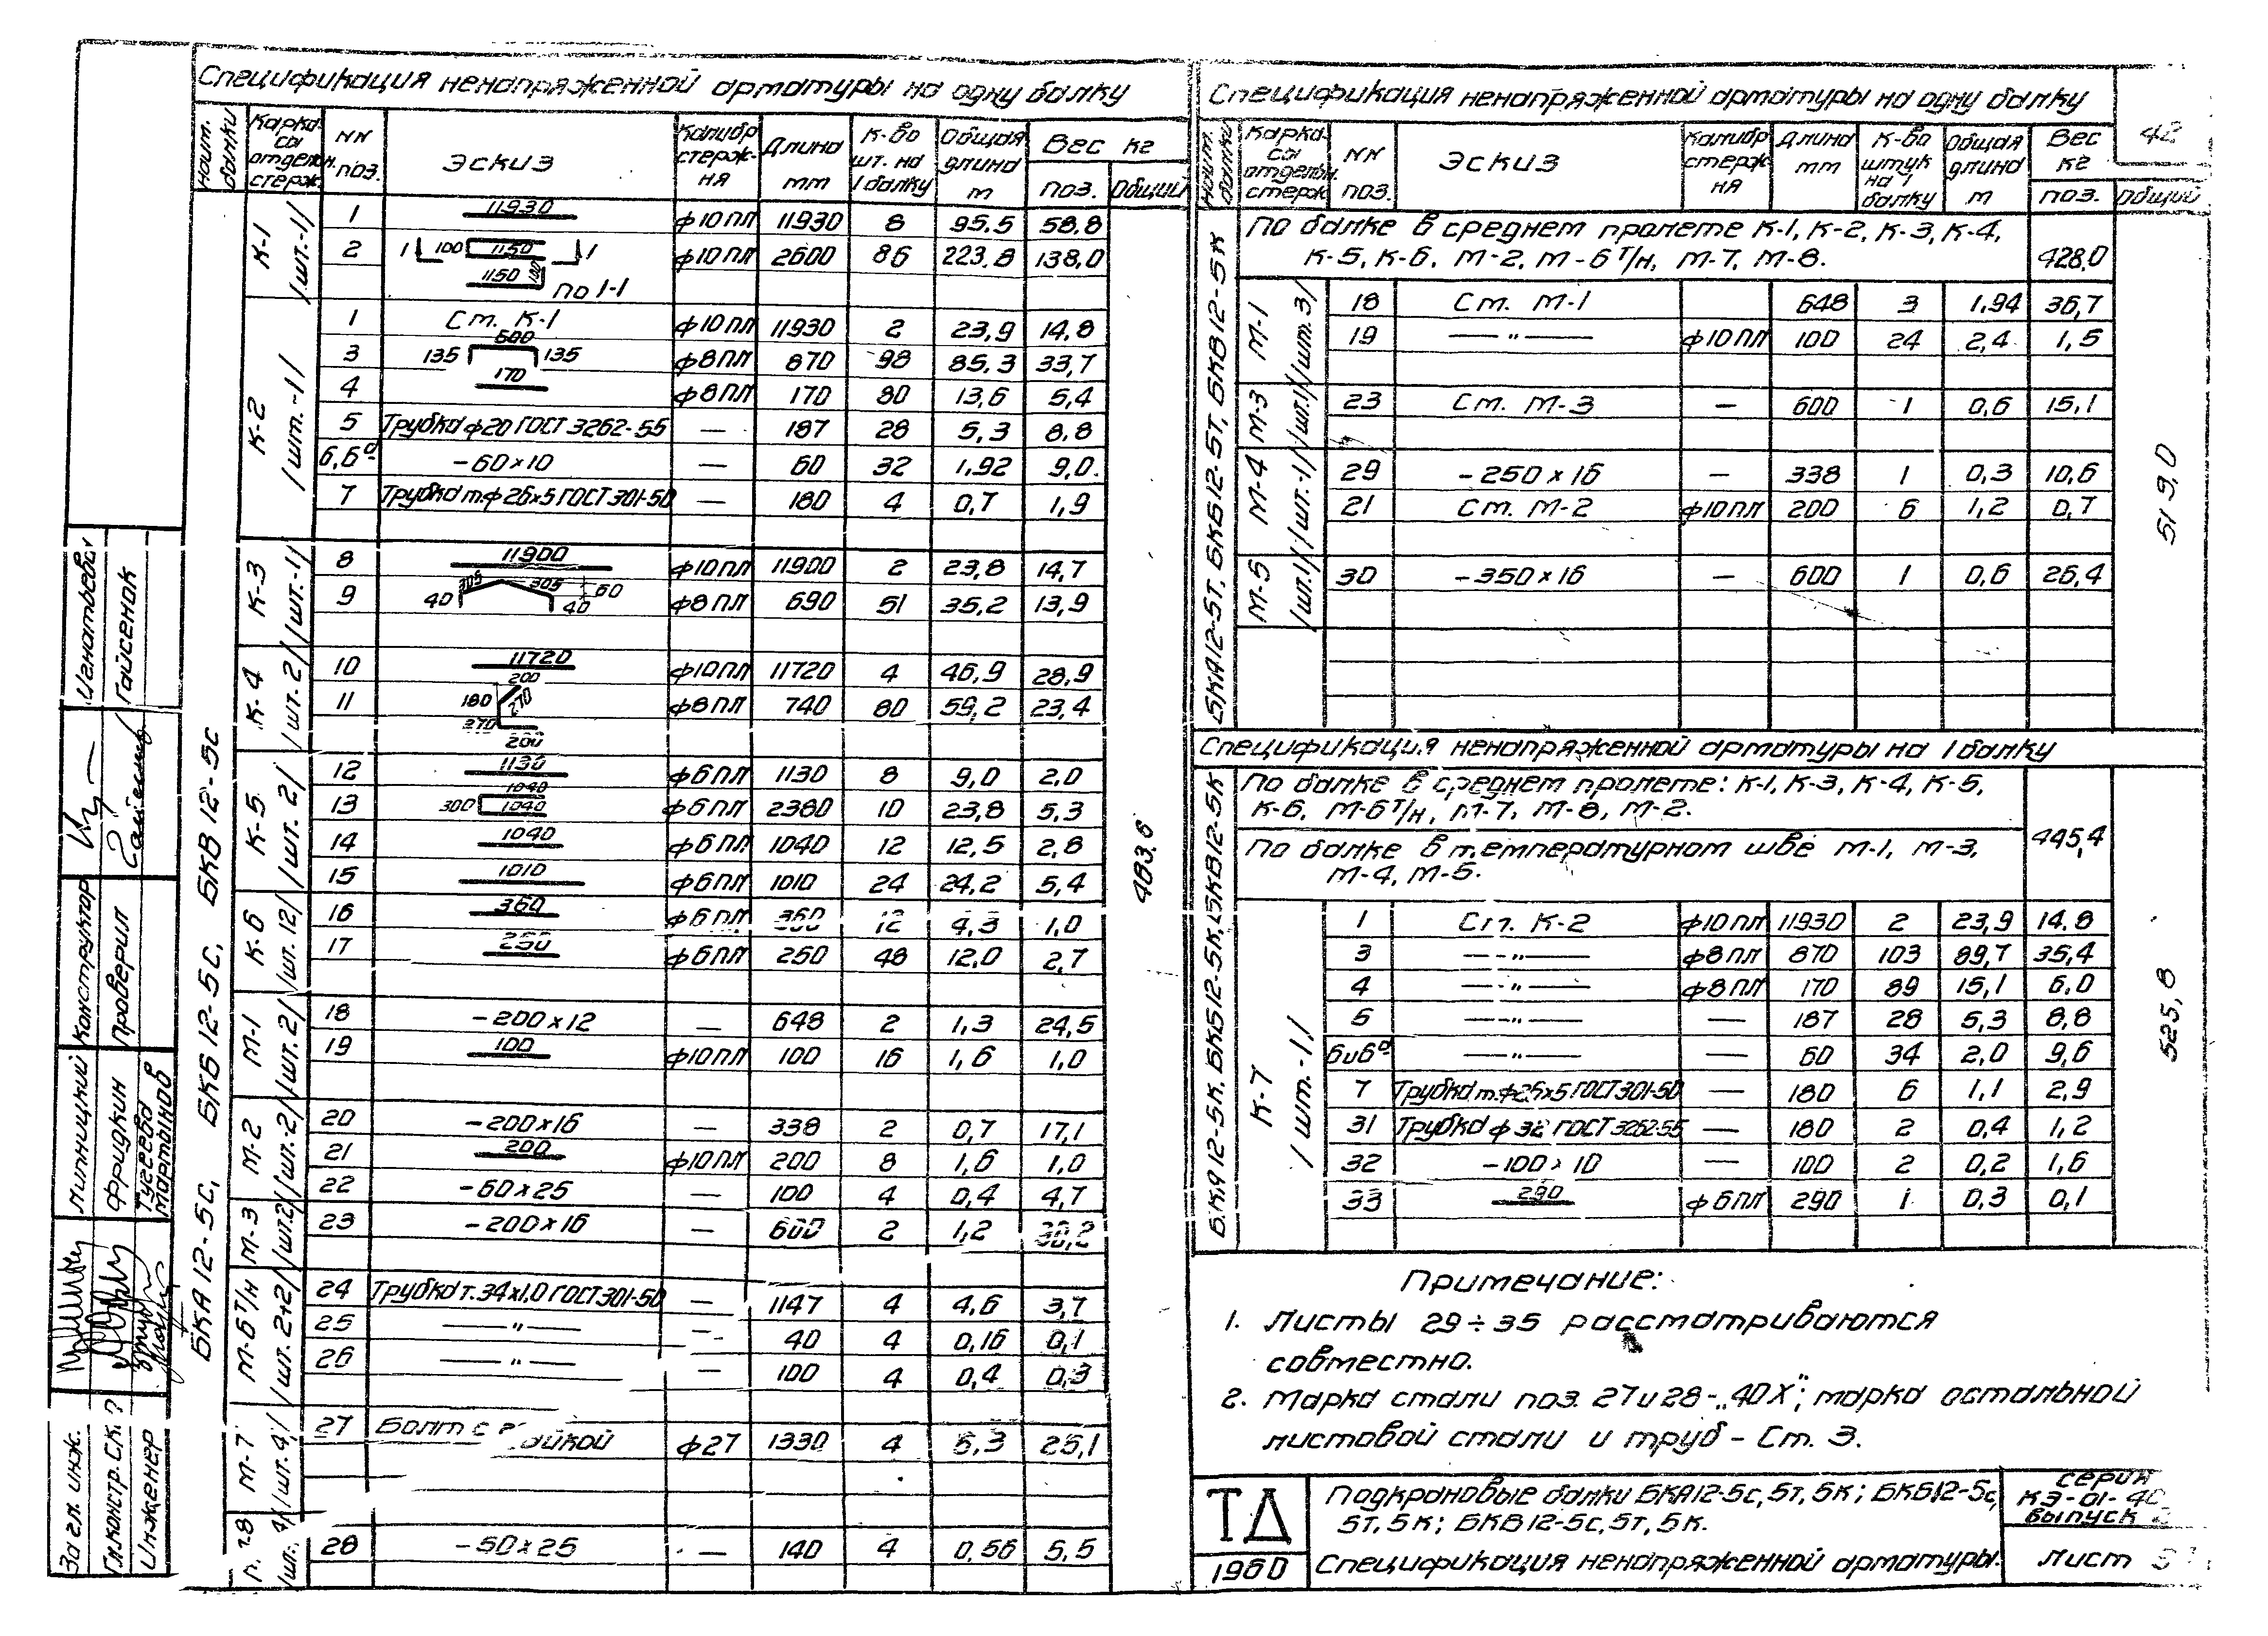 Спецификация ненапряженной арматуры на одну балку
Наим. балки | Каркасы отдельн. стерж. | NN поз. | Эскиз | Калибр стержня | Длина мм | К-во шт. на 1 балку | Общая длина м | Вес кг поз. | Общий
БКА 12-5с, БКБ 12-5с, БКВ 12-5с
К-1 /шт.-1/
1 11930 ф10пл 11930 8 95,5 58,8
2 1 100 1150 1 ф10пл 2600 86 223,8 138,0
1150 100 по 1-1
К-2 /шт.-1/
1 См. К-1 ф10пл 11930 2 23,9 14,8
3 135 600 135 ф8пл 870 98 85,3 33,7
4 170 ф8пл 170 80 13,6 5,4
5 Трубка ф20 ГОСТ 3262-55 — 187 28 5,3 8,8
6,6а -60×10 — 60 32 1,92 9,0
7 Трубка т.ф26×5 ГОСТ 301-50 — 180 4 0,7 1,9
К-3 /шт.-1/
8 11900 ф10пл 11900 2 23,8 14,7
9 40 305 305 60 40 ф8пл 690 51 35,2 13,9
К-4 /шт. 2/
10 11720 ф10пл 11720 4 46,9 28,9
11 200 180 270 270 200 ф8пл 740 80 59,2 23,4
К-5 /шт. 2/
12 1130 ф6пл 1130 8 9,0 2,0
13 300 1040 1040 ф6пл 2380 10 23,8 5,3
14 1040 ф6пл 1040 12 12,5 2,8
15 1010 ф6пл 1010 24 24,2 5,4
К-6 /шт. 12/
16 360 ф6пл 360 12 4,3 1,0
17 250 ф6пл 250 48 12,0 2,7
М-1 /шт. 2/
18 -200×12 — 648 2 1,3 24,5
19 100 ф10пл 100 16 1,6 1,0
М-2 /шт.-2/
20 -200×16 — 338 2 0,7 17,1
21 200 ф10пл 200 8 1,6 1,0
22 -60×25 — 100 4 0,4 4,7
М-3 /шт.2/
23 -200×16 — 600 2 1,2 30,2
М-6т/н /шт. 2+2/
24 Трубка т. 34×1,0 ГОСТ 301-50 — 1147 4 4,6 3,7
25 —"— — 40 4 0,16 0,1
26 —"— — 100 4 0,4 0,3
М-7 /шт. 4/
27 Болт с ф27 1330 4 5,3 25,1
28 -50×25 — 140 4 0,56 5,5
483,6
Спецификация ненапряженной арматуры на одну балку
42
Наим. балки | Каркасы отдельн. стерж. | NN поз. | Эскиз | Калибр стержня | Длина мм | К-во штук на 1 балку | Общая длина м | Вес кг поз. | Общий
БКА12-5т, БКБ12-5т, БКВ12-5к
По балке в среднем пролете К-1, К-2, К-3, К-4,
К-5, К-6, М-2, М-6т/н, М-7, М-8. 428,0
М-1 /шт. 3/
18 См. М-1 648 3 1,94 36,7
19 —"— ф10пл 100 24 2,4 1,5
М-3 /шт.1/
23 См. М-3 — 600 1 0,6 15,1
М-4 /шт.-1/
29 -250×16 — 338 1 0,3 10,6
21 См. М-2 ф10пл 200 6 1,2 0,7
М-5 /шт.1/
30 -350×16 — 600 1 0,6 26,4
519,0
Спецификация ненапряженной арматуры на 1 балку
БКА 12-5к, БКБ12-5к, БКВ12-5к
По балке в среднем пролете: К-1, К-3, К-4, К-5,
К-6, М-6т/н, М-7, М-8, М-2.
По балке в температурном шве М-1, М-3,
М-4, М-5.
445,4
К-7 /шт.-1/
1 См. К-2 ф10пл 11930 2 23,9 14,8
3 —"— ф8пл 870 103 89,7 35,4
4 —"— ф8пл 170 89 15,1 6,0
5 —"— — 187 28 5,3 8,8
6и6а —"— — 60 34 2,0 9,6
7 Трубка т.ф26×5 ГОСТ 301-50 — 180 6 1,1 2,9
31 Трубка ф 32 ГОСТ 3262-55 — 180 2 0,4 1,2
32 -100×10 — 100 2 0,2 1,6
33 290 ф6пл 290 1 0,3 0,1
525,8
Примечание:
1. Листы 29÷35 рассматриваются
совместно.
2. Марка стали поз. 27 и 28 - „40Х"; марка остальной
листовой стали и труб - Ст. 3.
ТД
1960
Подкрановые балки БКА12-5с, 5т, 5к; БКБ12-5с,
5т, 5к; БКВ12-5с, 5т, 5к.
Спецификация ненапряженной арматуры.
серия
КЭ-01-
выпуск
Лист
Игнатьева
Гайсенок
Конструктор
Проверил
Милницкий
Фридкин
Тугеева
Мартыков
За гл. инж.
Гл. констр. СК.
Инженер